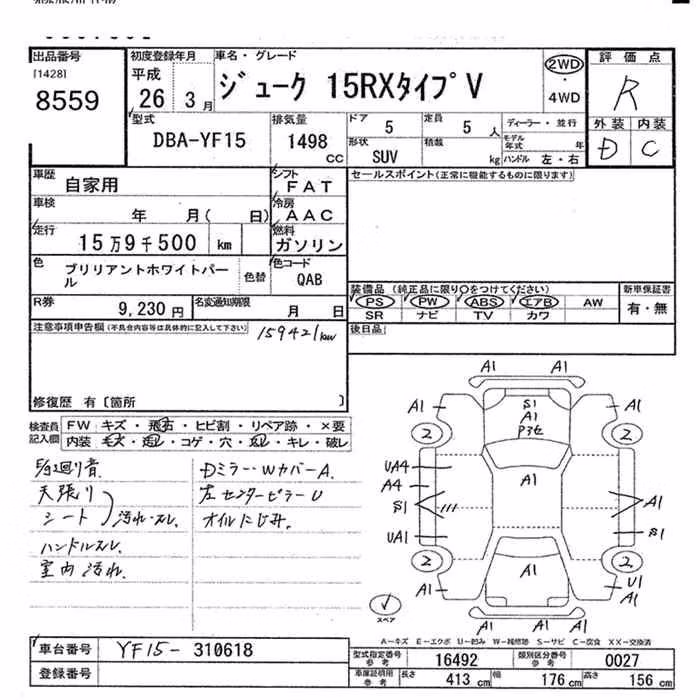 出品番号
[1428]
8559
初度登録年月
平成
26年 3月
車名・グレード
ジューク 15RXタイプV
2WD
・
4WD
評価点
R
外装 内装
D C
型式
DBA-YF15
排気量
1498
CC
ドア
5
定員
5 人
ディーラー・並行
形状
SUV
積載
kg
モデル年式 年
ハンドル 左・右
車歴
自家用
シフト
FAT
セールスポイント(正常に機能するものに限ります)
車検
年 月( 日)
冷房
AAC
走行
15万9千500 km
燃料
ガソリン
色
ブリリアントホワイトパール
色替
色コード
QAB
装備品 (純正品に限り○をつけてください)
PS PW ABS エアB AW
SR ナビ TV カワ
新車保証書
有・無
R券
9,230円
名変通知期限
月 日
後日品
注意事項申告欄(不具合内容等は具体的に記入して下さい)
159421km
修復歴 有〔箇所 〕
検査員記入欄
FW キズ・飛石・ヒビ割・リペア跡・×要
内装 キズ・コゲ・穴・キレ・破レ
天張り
シート 汚れ・スレ
ハンドルスレ
室内汚れ
Dミラー・WカバーA
左センターピラーU
オイルにじみ
A1 A1
A1 S1 A1
A1
2 2
UA4
A4
A1
S1
A1
UA1
S1
2 2
A1
A1
U1
A1
A1 A1
スペア
A-キズ E-エクボ U-凹み W-補修跡 S-サビ C-腐食 XX-交換済
車台番号
YF15-310618
登録番号
型式指定番号
参考
16492
類別区分番号
参考
0027
車庫証明用
参考
長さ 413 cm
幅 176 cm
高さ 156 cm